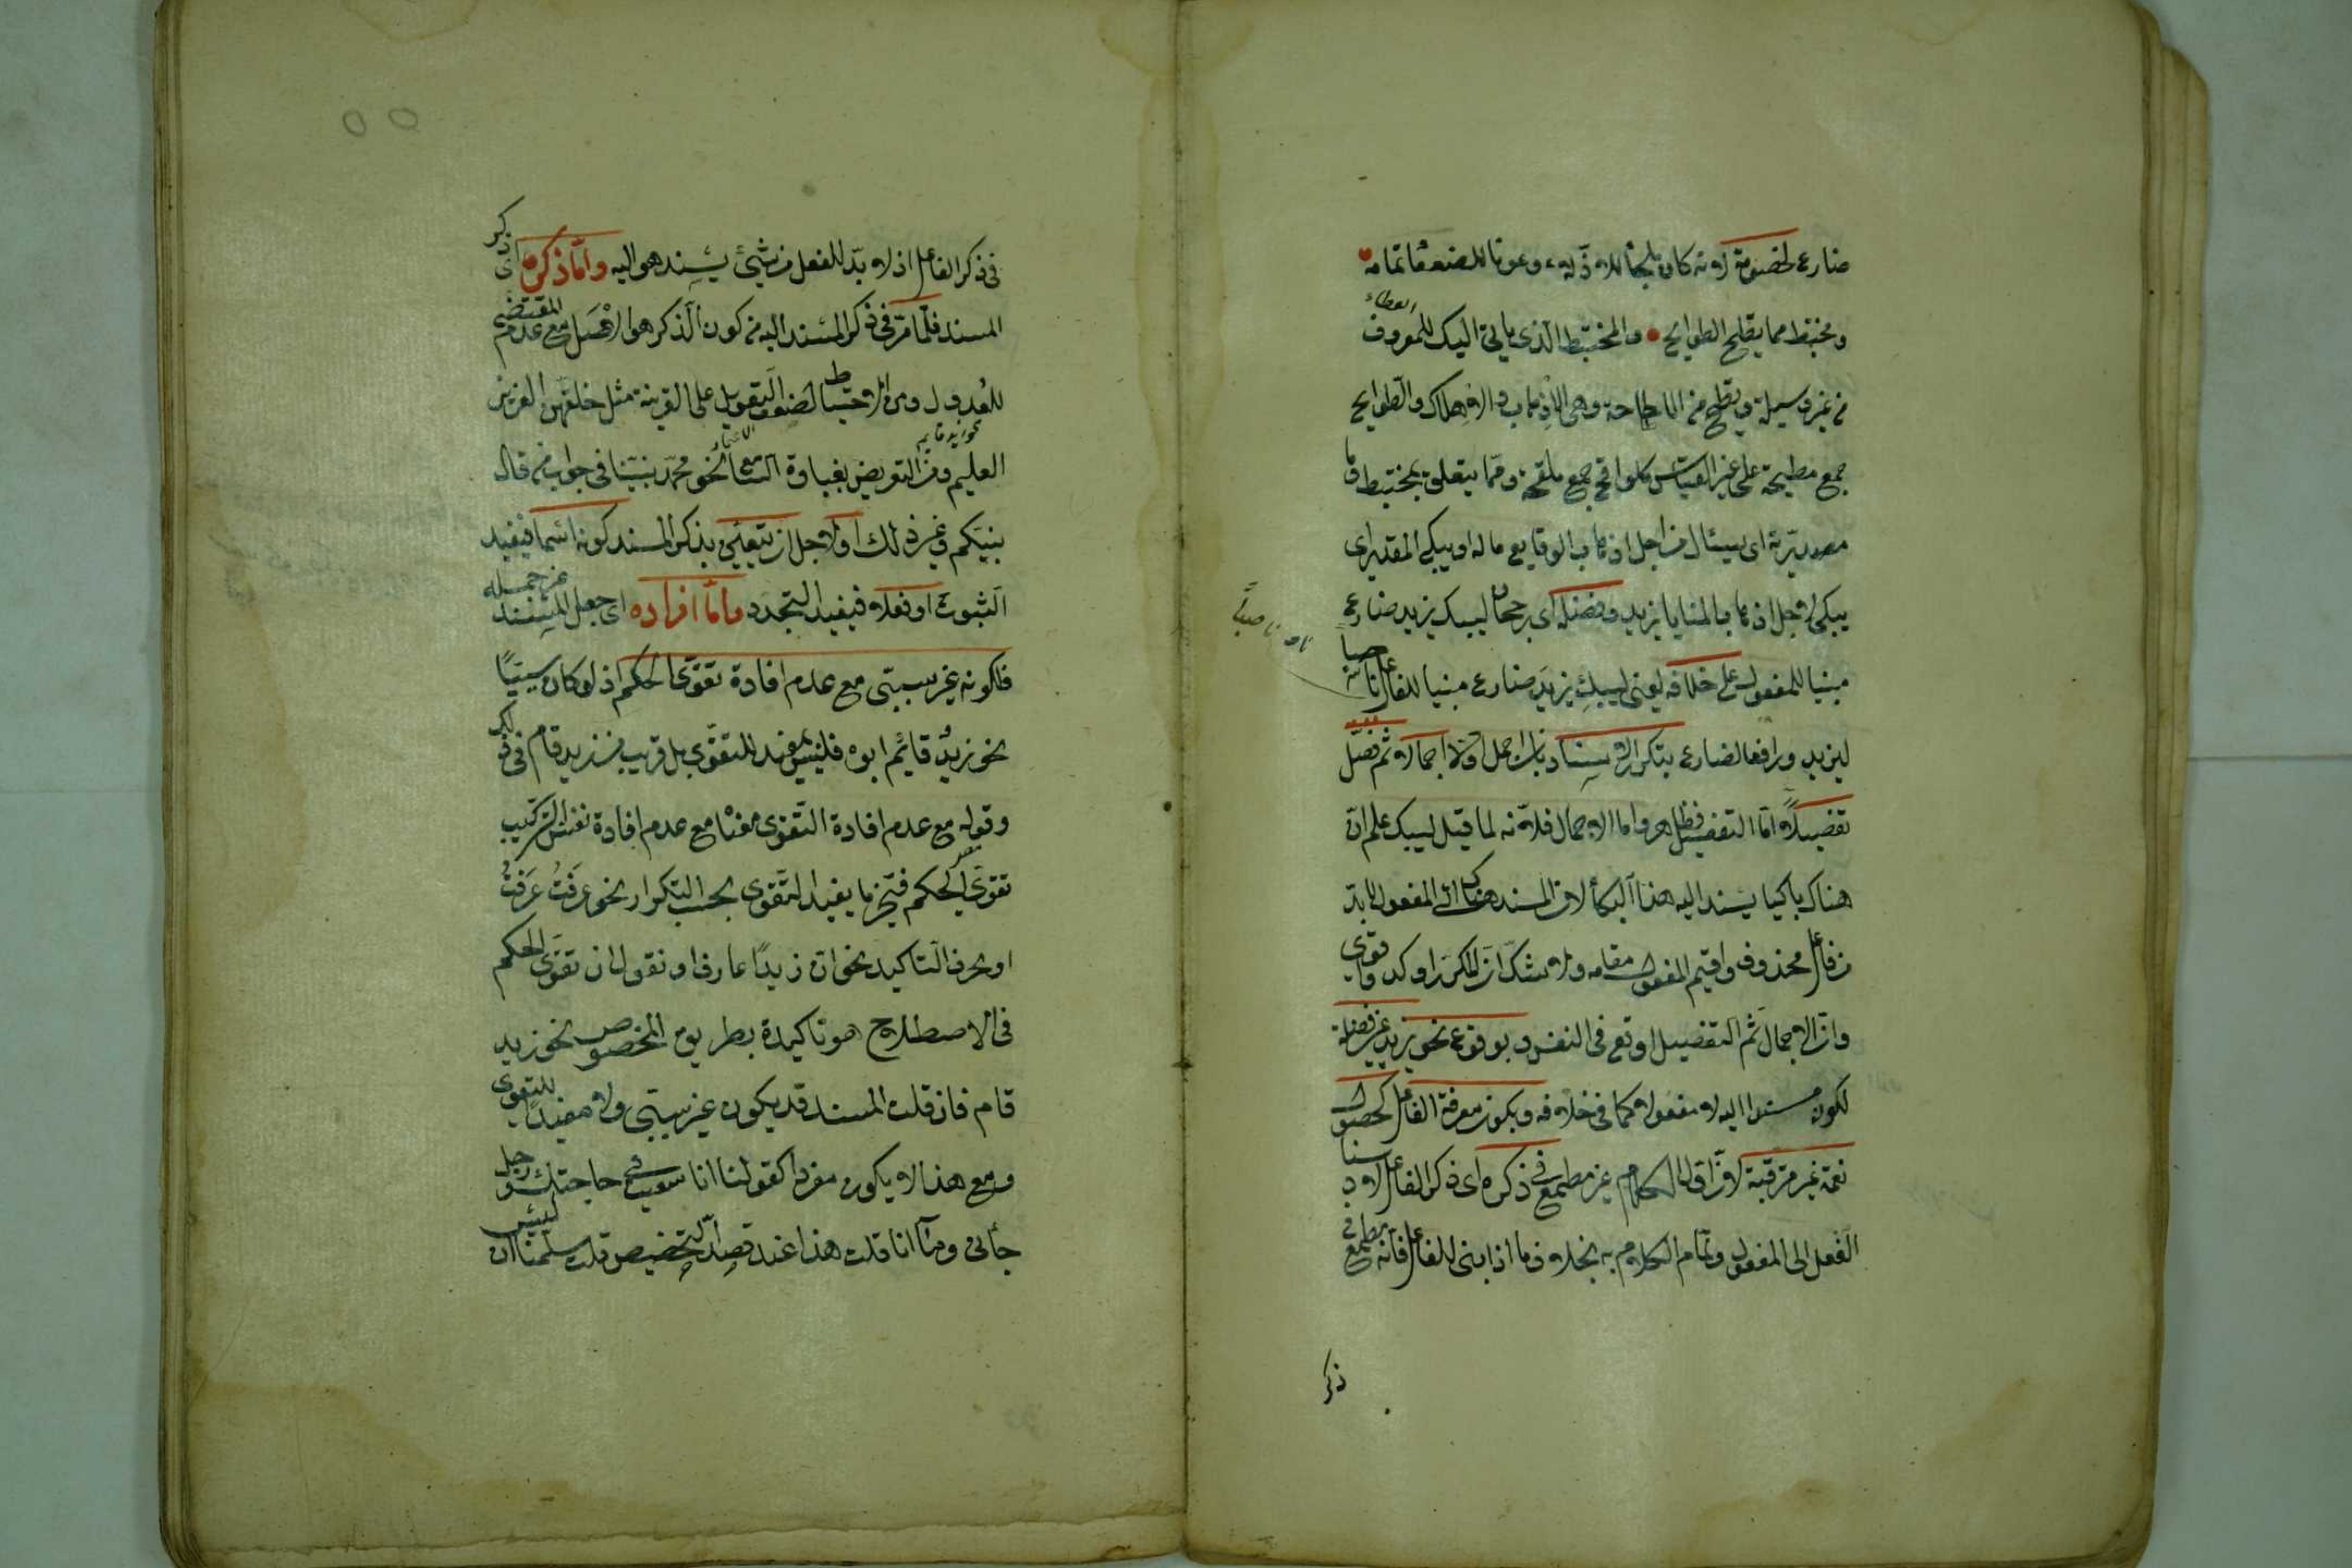 ضارع لخصومة لانه كان ملجأ للاذلاء وعونا للضعفاء تمامه
ومختبط مما تطيح الطوايح والمختبط الذى ياتى اليك للمعروف
من غير وسيلة وتطيح من الاطاحة وهى الاذهاب والاهلاك والطوايح
جمع مطيحة على غير القياس كلواقح جمع ملقحة ومما يتعلق بمختبط وما
مصدرية اى يسئال من اجل اذهاب الوقايع ماله او يبكى المقدر اى
يبكى لاجل اذهاب المنايا يزيد وفضله اى رجحان ليبك يزيد ضارع
مبنيا للمفعول على خلافه يعنى ليبك يزيد ضارع مبنيا للفاعل ناصبا
ليزيد ورافعا لضارع بتكرار الاسناد بان اجمل اولا اجمالا ثم فصل
تفصيلا اما التفصيل فظاهر واما الاجمال فلانه لما قيل ليبك علم ان
هناك باكيا يسند اليه هذا البكأ لان المسند الى المفعول لا بد
من فاعل محذوف واقيم المفعول مقامه ولا شك ان المكرر اوكد واقوى
وان الاجمال ثم التفصيل اوقع فى النفس وبوقوع نحو يزيد غير فضلة
لكونه مسندا اليه لا مفعولا كما فى خلافه وبكون معرفة الفاعل كحصول
نعمة غير مترقبة لان اول الكلام غير مطمع فى ذكره اى ذكر الفاعل لاسناد
الفعل الى المفعول وتمام الكلام به بخلاف ما اذا بنى للفاعل فانه مطمع فى
ذكر
فى ذكر الفاعل اذ لا بد للفعل من شئ يسند هو اليه واما ذكره اى ذكر
المسند فلما مر فى ذكر المسند اليه من كون الذكر هو الاصل مع عدم المقتضى
للعدول ومن الاحتياط لضعف التعويل على القرينة مثل خلقهن العزيز
العليم ومن التعريض بغباوة السامع نحو محمد نبينا فى جواب من قال
نبيكم وغير ذلك او لاجل ان يتعين بذكر المسند كونه اسما فيفيد
الثبوت او فعلا فيفيد التجدد واما افراده اى جعل المسند غير جملة
فلكونه غير سببى مع عدم افادة تقوى الحكم اذ لو كان سببيا
نحو زيد قايم ابوه فليس بمفيد للتقوى بل قريب من زيد قام فى ذلك
وقوله مع عدم افادة التقوى معناه مع عدم افادة نفس التركيب
تقوى الحكم فيخرج ما يفيد التقوى بحسب التكرار نحو عرفت عرفت
او بحرف التاكيد نحو ان زيدا عارف او نقول ان تقوى الحكم
فى الاصطلاح هو تاكيده بطريق المخصوص نحو زيد
قام فان قلت المسند قد يكون غير سببى ولا مفيد للتقوى
ومع هذا لا يكون مفردا كقولنا انا سعيت فى حاجتك ورجل
جأنى وما انا قلت هذا عند قصد التخصيص قلت سلمنا ان ليس